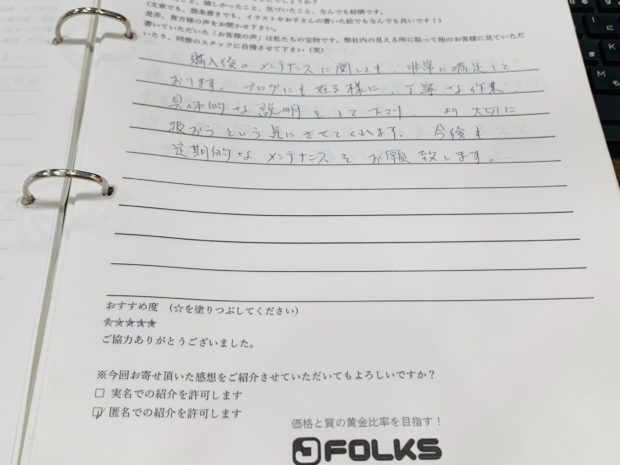 こと、嬉しかったこと、気づいたこと、なんでも結構です。
(文章でも、箇条書きでも、イラストやお子さんの書いた絵でもなんでも良いです!)
是非、貴方様の声をお聞かせ下さい。
書いていただいた「お客様の声」は私たちの宝物です。弊社内の見える所に貼って他のお客様に見ていただ
いたり、同僚のスタッフに自慢させて下さい(笑)
購入後のメンテナンスに関しても、非常に満足して
おります。ブログにも在る様に、丁寧な作業、
具体的な説明をして下さり、より大切に
扱おうという気にさせてくれます。今後も
定期的なメンテナンスをお願致します。
おすすめ度 (☆を塗りつぶしてください)
★★★★★
ご協力ありがとうございました。
※今回お寄せ頂いた感想をご紹介させていただいてもよろしいですか?
□ 実名での紹介を許可します
☑ 匿名での紹介を許可します
価格と質の黄金比率を目指す!
FOLKS